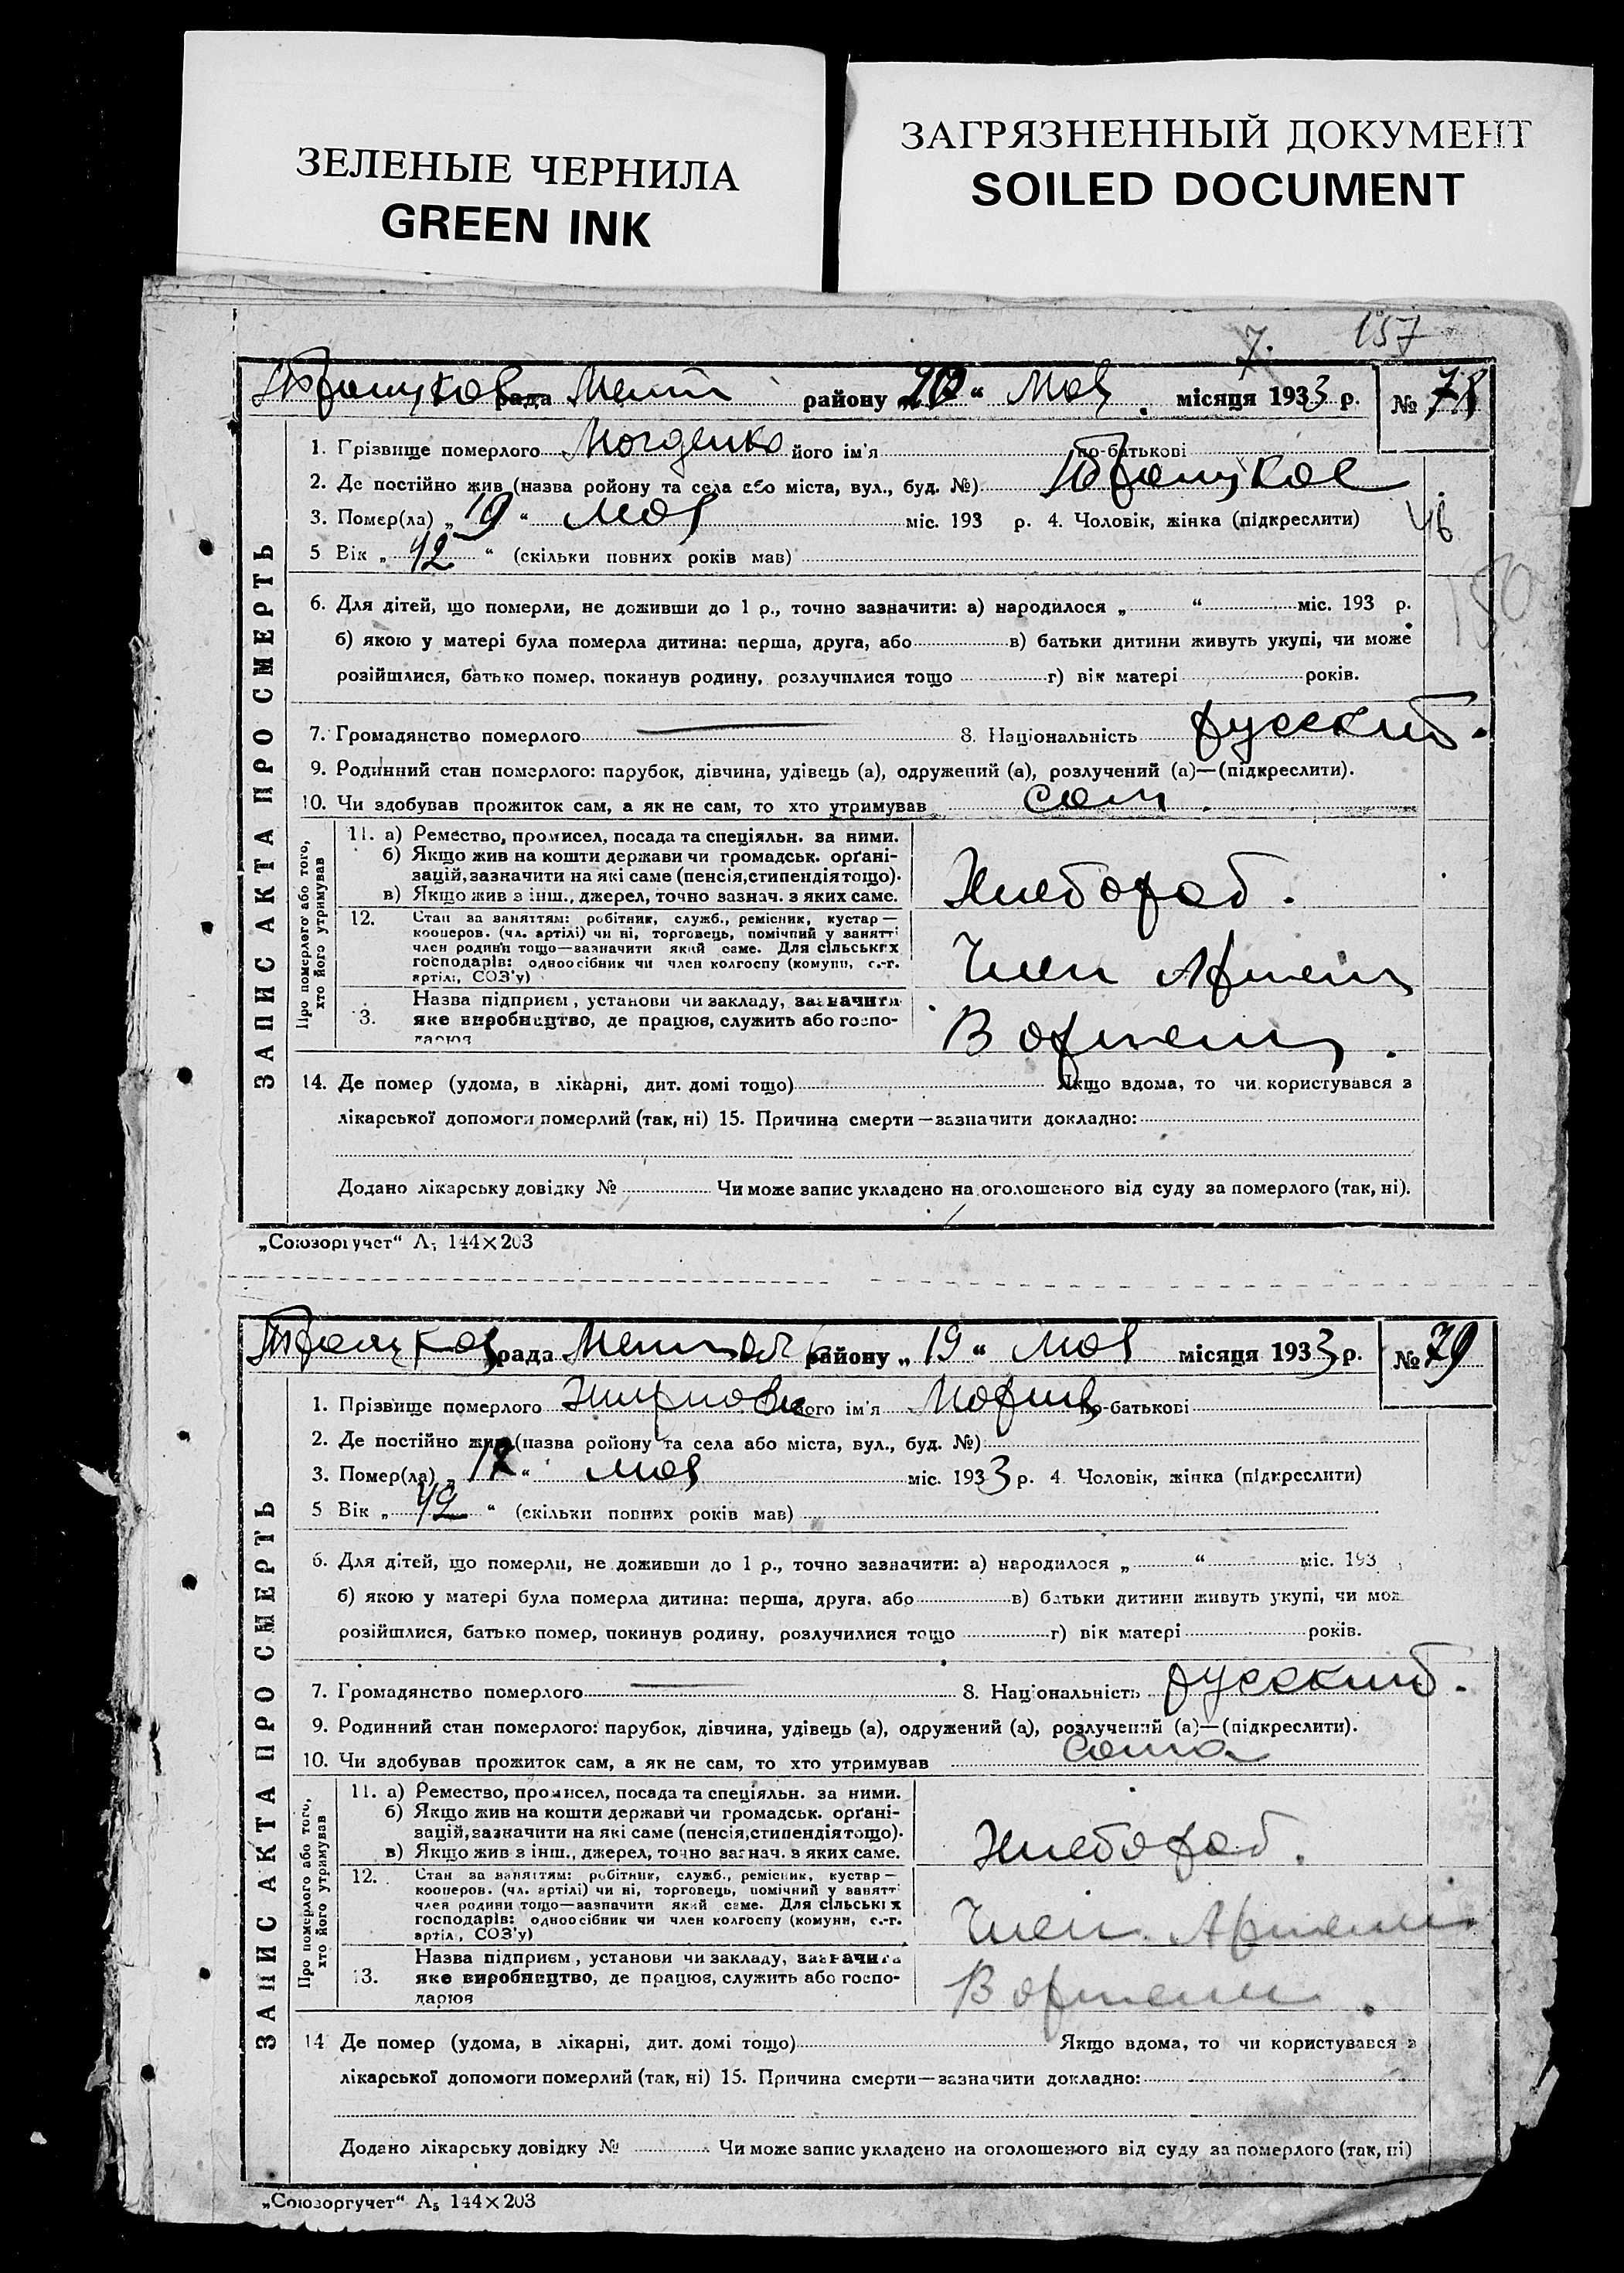 ЗЕЛЕНЫЕ ЧЕРНИЛА
GREEN INK
ЗАГРЯЗНЕННЫЙ ДОКУМЕНТ
SOILED DOCUMENT
7. 157
рада району „20“ Мая місяця 1933 р. № 78
1. Грізвище померлого його ім'я по-батькові
2. Де постійно жив (назва ройону та села або міста, вул., буд. №)
3. Помер(ла) „19“ мая міс. 193 р. 4. Чоловік, жінка (підкреслити)
5 Вік „42“ (скільки повних років мав)
6. Для дітей, що померли, не доживши до 1 р., точно зазначити: а) народилося „ “ міс. 193 р.
б) якою у матері була померла дитина: перша, друга, або в) батьки дитини живуть укупі, чи може
розійшлися, батько помер, покинув родину, розлучилися тощо г) вік матері років.
7. Громадянство померлого 8. Національність русский.
9. Родинний стан померлого: парубок, дівчина, удівець (а), одружений (а), розлучений (а)—(підкреслити).
10. Чи здобував прожиток сам, а як не сам, то хто утримував сам.
11. а) Ремество, промисел, посада та спеціяльн. за ними.
б) Якщо жив на кошти держави чи громадськ. орґані-
зацій, зазначити на які саме (пенсія, стипендія тощо).
в) Якщо жив з інш., джерел, точно зазнач. з яких саме.
Хлебороб.
12. Стан за заняттям: робітник, служб., ремісник, кустар—
кооперов. (чл. артілі) чи ні, торговець, помічний у занятті
член родини тощо—зазначити який саме. Для сільських
господарів: одноосібник чи член колгоспу (комуни, с.-г.
артілі, СОЗ'у)
Член Артели
3. Назва підприєм, установи чи закладу, зазначити
яке виробництво, де працює, служить або госпо-
дарює
В артели.
14. Де помер (удома, в лікарні, дит. домі тощо) Якщо вдома, то чи користувався з
лікарської допомоги померлий (так, ні) 15. Причина смерти—зазначити докладно:
Додано лікарську довідку № Чи може запис укладено на оголошеного від суду за померлого (так, ні).
ЗАПИС АКТА ПРО СМЕРТЬ
Про померлого або того,
хто його утримував
„Союзоргучет“ А5 144×203
рада району „19“ мая місяця 1933 р. № 79
1. Прізвище померлого його ім'я по-батькові
2. Де постійно жив (назва ройону та села або міста, вул., буд. №)
3. Помер(ла) мая міс. 1933 р. 4. Чоловік, жінка (підкреслити)
5 Вік „42“ (скільки повних років мав)
6. Для дітей, що померли, не доживши до 1 р., точно зазначити: а) народилося „ “ міс. 193
б) якою у матері була померла дитина: перша, друга, або в) батьки дитини живуть укупі, чи мож
розійшлися, батько помер, покинув родину, розлучилися тощо г) вік матері років.
7. Громадянство померлого 8. Національність русский.
9. Родинний стан померлого: парубок, дівчина, удівець (а), одружений (а), розлучений (а)—(підкреслити).
10. Чи здобував прожиток сам, а як не сам, то хто утримував сама
11. а) Ремество, промисел, посада та спеціяльн. за ними.
б) Якщо жив на кошти держави чи громадськ. орґані-
зацій, зазначити на які саме (пенсія, стипендія тощо).
в) Якщо жив з інш., джерел, точно зазнач. з яких саме.
Хлебороб.
12. Стан за заняттям: робітник, служб., ремісник, кустар—
кооперов. (чл. артілі) чи ні, торговець, помічний у занятті
член родини тощо—зазначити який саме. Для сільських
господарів: одноосібник чи член колгоспу (комуни, с.-г.
артілі, СОЗ'у)
Член Артели
13. Назва підприєм, установи чи закладу, зазначити
яке виробництво, де працює, служить або госпо-
дарює
В артели.
14 Де помер (удома, в лікарні, дит. домі тощо) Якщо вдома, то чи користувався з
лікарської допомоги померлий (так, ні) 15. Причина смерти—зазначити докладно:
Додано лікарську довідку № Чи може запис укладено на оголошеного від суду за померлого (так, ні)
ЗАПИС АКТА ПРО СМЕРТЬ
Про померлого або того,
хто його утримував
„Союзоргучет“ А5 144×203